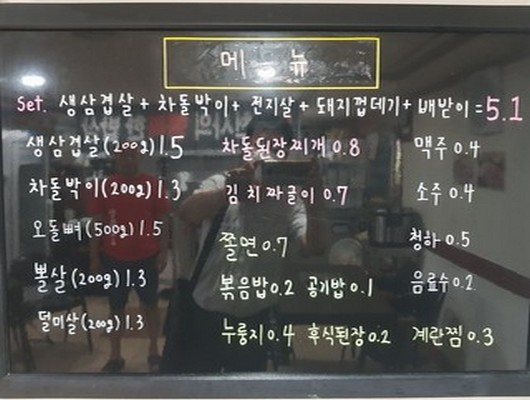 메뉴
Set. 생삼겹살 + 차돌박이 + 전지살 + 돼지껍데기 + 배받이 = 5.1
생삼겹살(200g) 1.5 차돌된장찌개 0.8 맥주 0.4
차돌박이(200g) 1.3 김치짜글이 0.7 소주 0.4
오돌뼈(500g) 1.5 쫄면 0.7 청하 0.5
뽈살(200g) 1.3 볶음밥 0.2 공기밥 0.1 음료수 0.2
덜미살(200g) 1.3 누룽지 0.4 후식된장 0.2 계란찜 0.3